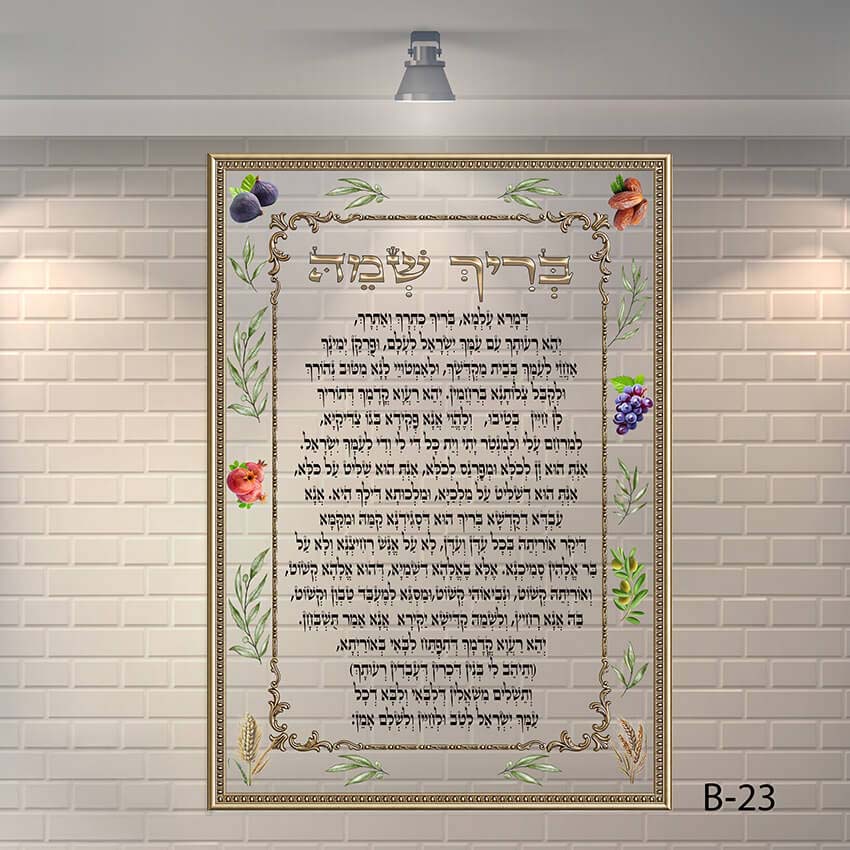 בְּרִיךְ שְׁמֵהּ
דְּמָרֵא עָלְמָא, בְּרִיךְ כִּתְרָךְ וְאַתְרָךְ,
יְהֵא רְעוּתָךְ עִם עַמָּךְ יִשְׂרָאֵל לְעָלַם, וּפֻרְקַן יְמִינָךְ
אַחֲזֵי לְעַמָּךְ בְּבֵית מִקְדְּשָׁךְ, וּלְאַמְטוֹיֵי לָנָא מִטּוּב נְהוֹרָךְ
וּלְקַבֵּל צְלוֹתָנָא בְּרַחֲמִין. יְהֵא רַעֲוָא קֳדָמָךְ דְּתוֹרִיךְ
לָן חַיִּין בְּטִיבוּ, וְלֶהֱוֵי אֲנָא פְקִידָא בְּגוֹ צַדִּיקַיָּא,
לְמִרְחַם עֲלַי וּלְמִנְטַר יָתִי וְיָת כָּל דִּי לִי וְדִי לְעַמָּךְ יִשְׂרָאֵל.
אַנְתְּ הוּא זָן לְכֹלָּא וּמְפַרְנֵס לְכֹלָּא, אַנְתְּ הוּא שַׁלִּיט עַל כֹּלָּא,
אַנְתְּ הוּא דְשַׁלִּיט עַל מַלְכַיָּא, וּמַלְכוּתָא דִּילָךְ הִיא. אֲנָא
עַבְדָּא דְקֻדְשָׁא בְּרִיךְ הוּא דְּסָגִידְנָא קַמֵּהּ וּמִקַּמָּא
דִּיקַר אוֹרַיְתֵהּ בְּכָל עִדָּן וְעִדָּן, לָא עַל אֱנָשׁ רָחִיצְנָא וְלָא עַל
בַּר אֱלָהִין סָמִיכְנָא. אֶלָּא בֶּאֱלָהָא דִשְׁמַיָּא, דְּהוּא אֱלָהָא קְשׁוֹט,
וְאוֹרַיְתֵהּ קְשׁוֹט, וּנְבִיאוֹהִי קְשׁוֹט,וּמַסְגֵּא לְמֶעְבַּד טַבְוָן וּקְשׁוֹט,
בֵּהּ אֲנָא רָחִיץ, וְלִשְׁמֵהּ קַדִּישָׁא יַקִּירָא אֲנָא אֵמַר תֻּשְׁבְּחָן.
יְהֵא רַעֲוָא קֳדָמָךְ דְּתִפְתַּח לִבָּאִי בְּאוֹרַיְתָא,
(וְתֵיהַב לִי בְּנִין דִּכְרִין דְּעָבְדִין רְעוּתָךְ)
וְתַשְׁלִים מִשְׁאֲלִין דְּלִבָּאִי וְלִבָּא דְכָל
עַמָּךְ יִשְׂרָאֵל לְטַב וּלְחַיִּין וְלִשְׁלָם אָמֵן:
B-23